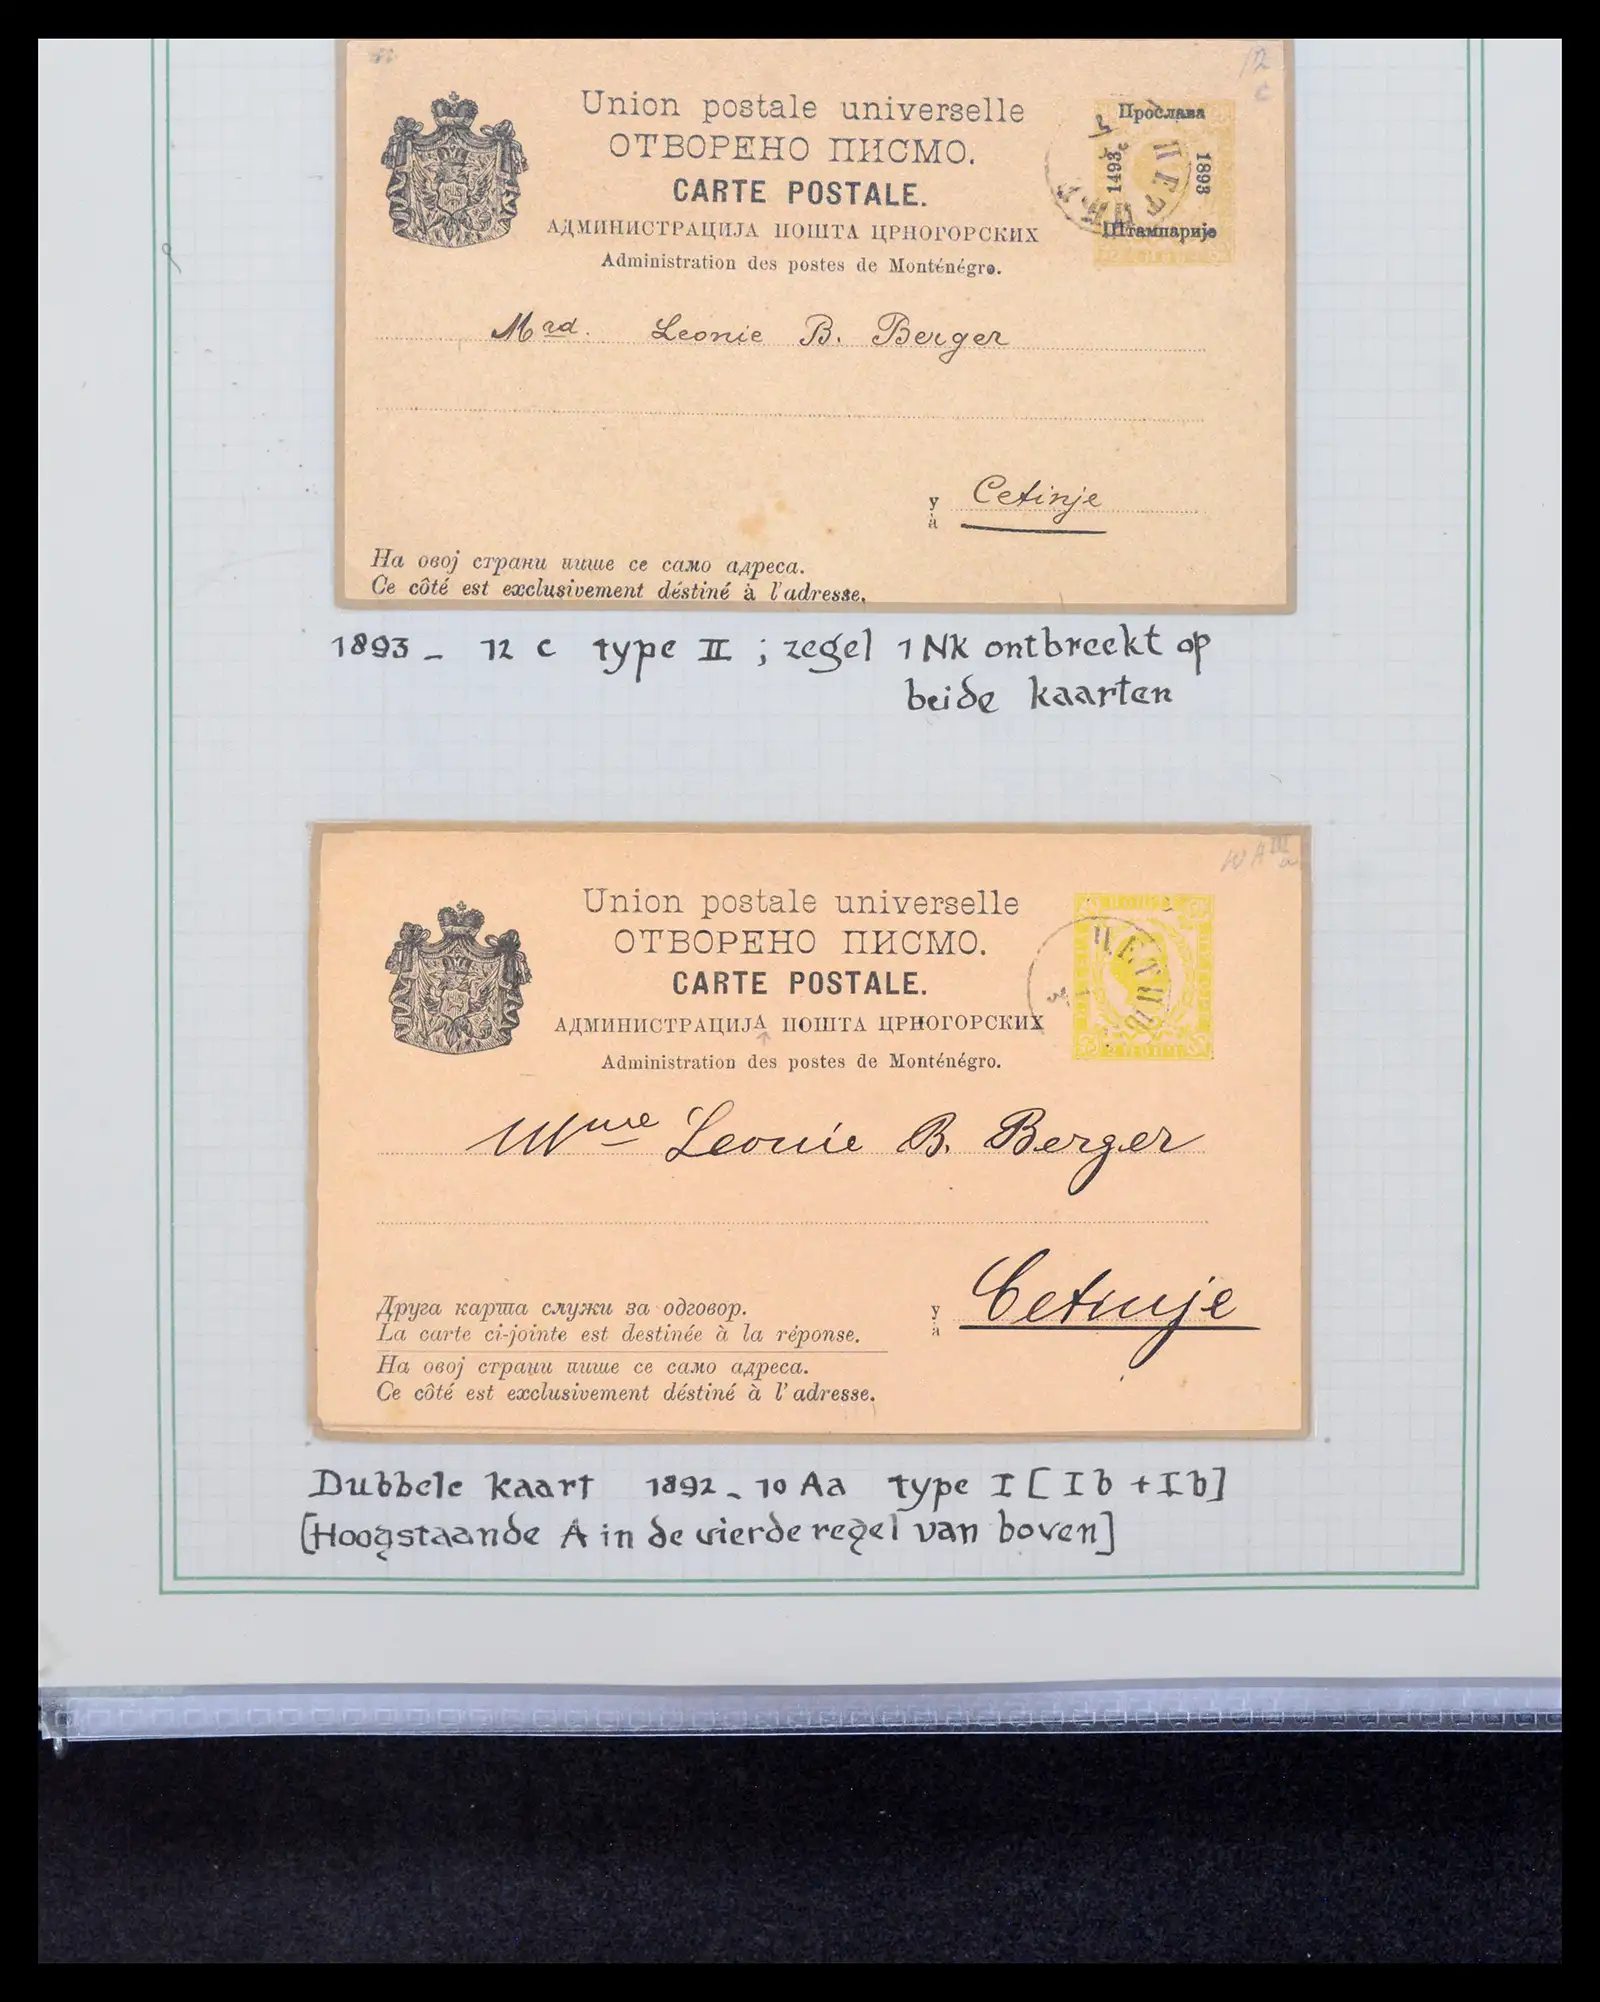 12
c
Union postale universelle
ОТВОРЕНО ПИСМО.
CARTE POSTALE.
АДМИНИСТРАЦИЈА ПОШТА ЦРНОГОРСКИХ
Administration des postes de Monténégro.
Прослава
1493
1893
Штампарије
Mad. Leonie B. Berger
у
à
Cetinje
На овој страни пише се само адреса.
Ce côté est exclusivement déstiné à l'adresse.
1893 - 12 c type II ; zegel 1 NK ontbreekt op
beide kaarten
Union postale universelle
ОТВОРЕНО ПИСМО.
CARTE POSTALE.
АДМИНИСТРАЦИЈА ПОШТА ЦРНОГОРСКИХ
Administration des postes de Monténégro.
Mme Leonie B. Berger
у
à
Cetinje
Друга карта служи за одговор.
La carte ci-jointe est destinée à la réponse.
На овој страни пише се само адреса.
Ce côté est exclusivement déstiné à l'adresse.
Dubbele kaart 1892 - 10 Aa type I [Ib + Ib]
[Hoogstaande A in de vierde regel van boven]